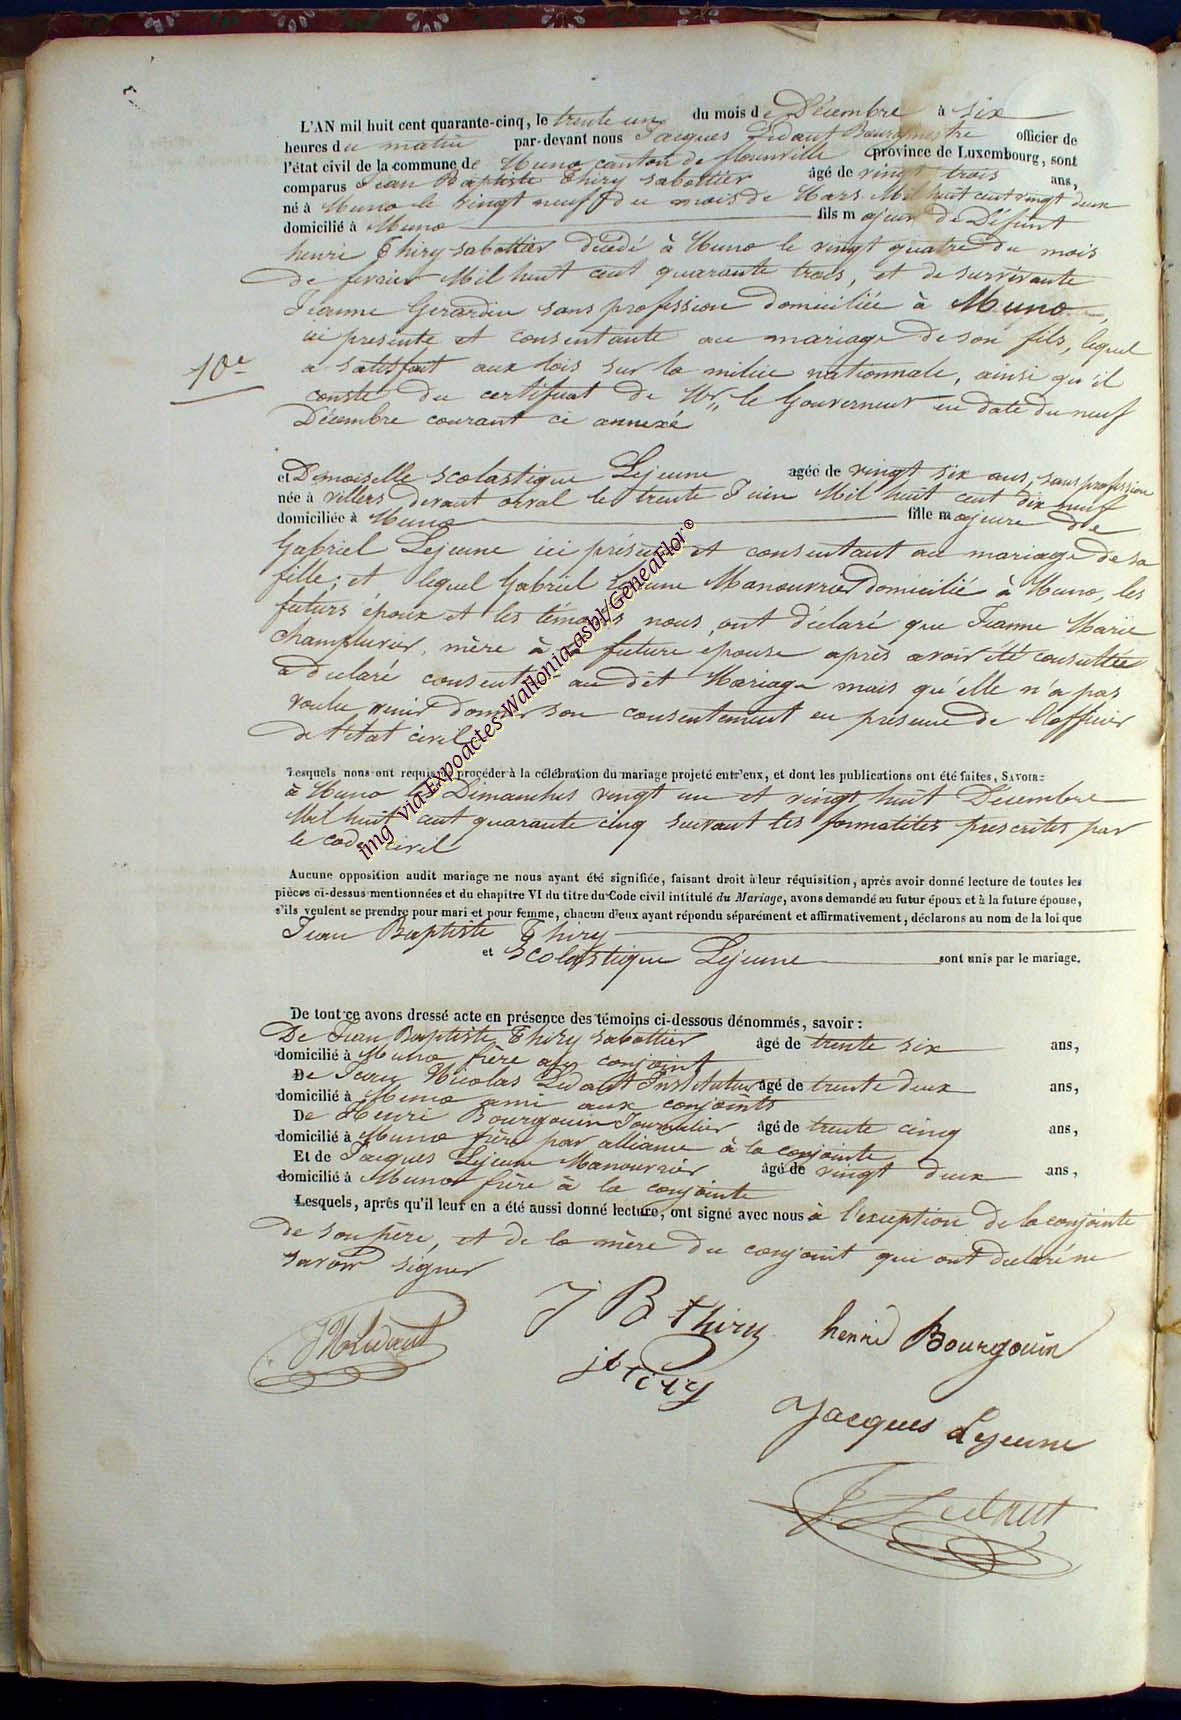 L'AN mil huit cent quarante-cinq, le trente un du mois de Décembre à six
heures du matin par-devant nous Jacques Lidaut Bourgmestre officier de
l'état civil de la commune de Muno canton de florenville province de Luxembourg, sont
comparus Jean Baptiste Thiry sabottier âgé de vingt trois ans,
né à Muno le vingt neuf du mois de Mars Mil huit cent vingt deux
domicilié à Muno fils majeur de Défunt
henri Thiry sabottier décédé à Muno le vingt quatre du mois
de fevrier Mil huit cent quarante trois, et de survivante
Jeanne Gerardin sans profession domiciliée à Muno,
ici presente et consentante au mariage de son fils, lequel
10e
a satisfait aux lois sur la milice nationnale, ainsi qu'il
conste du certificat de Mr. le Gouverneur en date du neuf
Décembre courant ci annexé
et Demoiselle scolastique Lejeune agée de vingt six ans, sans profession
née à villers devant orval le trente Juin Mil huit cent dix neuf
domiciliée à Muno fille majeure de
Gabriel Lejeune ici présent et consentant au mariage de sa
fille; et lequel Gabriel Lejeune Manouvrier domicilié à Muno, les
futurs époux et les témoins nous ont déclaré que Jeanne Marie
Champluvier, mère à la future épouse après avoir été consultée
a declaré consentir au dit Mariage mais qu'elle n'a pas
voulu venir donner son consentement en présence de l'officier
de l'état civil
Lesquels nous ont requis de procéder à la célébration du mariage projeté entr'eux, et dont les publications ont été faites, SAVOIR:
à Muno les Dimanches vingt un et vingt huit Décembre
Mil huit cent quarante cinq suivant les formalités prescrites par
le code civil
Aucune opposition audit mariage ne nous ayant été signifiée, faisant droit à leur réquisition, après avoir donné lecture de toutes les
pièces ci-dessus mentionnées et du chapitre VI du titre du Code civil intitulé du Mariage, avons demandé au futur époux et à la future épouse,
s'ils veulent se prendre pour mari et pour femme, chacun d'eux ayant répondu séparément et affirmativement, déclarons au nom de la loi que
Jean Baptiste Thiry
et Scolastique Lejeune sont unis par le mariage.
De tout ce avons dressé acte en présence des témoins ci-dessous dénommés, savoir:
De Jean Baptiste Thiry sabottier âgé de trente six ans,
domicilié à Muno frère au conjoint
De Jean Nicolas Lidaut Instituteur âgé de trente deux ans,
domicilié à Muno ami aux conjoints
De Henri Bourgouin Journalier âgé de trente cinq ans,
domicilié à Muno frère par alliance à la conjointe
Et de Jacques Lejeune Manouvrier âgé de vingt deux ans,
domicilié à Muno frère à la conjointe
Lesquels, après qu'il leur en a été aussi donné lecture, ont signé avec nous à l'exception de la conjointe
de son père, et de la mère du conjoint qui ont déclaré ne
savoir signer
J N Lidaut
J B thiry
henri Bourgouin
jb tiry
Jacques Lejeune
J. Lidaut
img via Expoactes-Wallonia asbl/GeneaFlor®